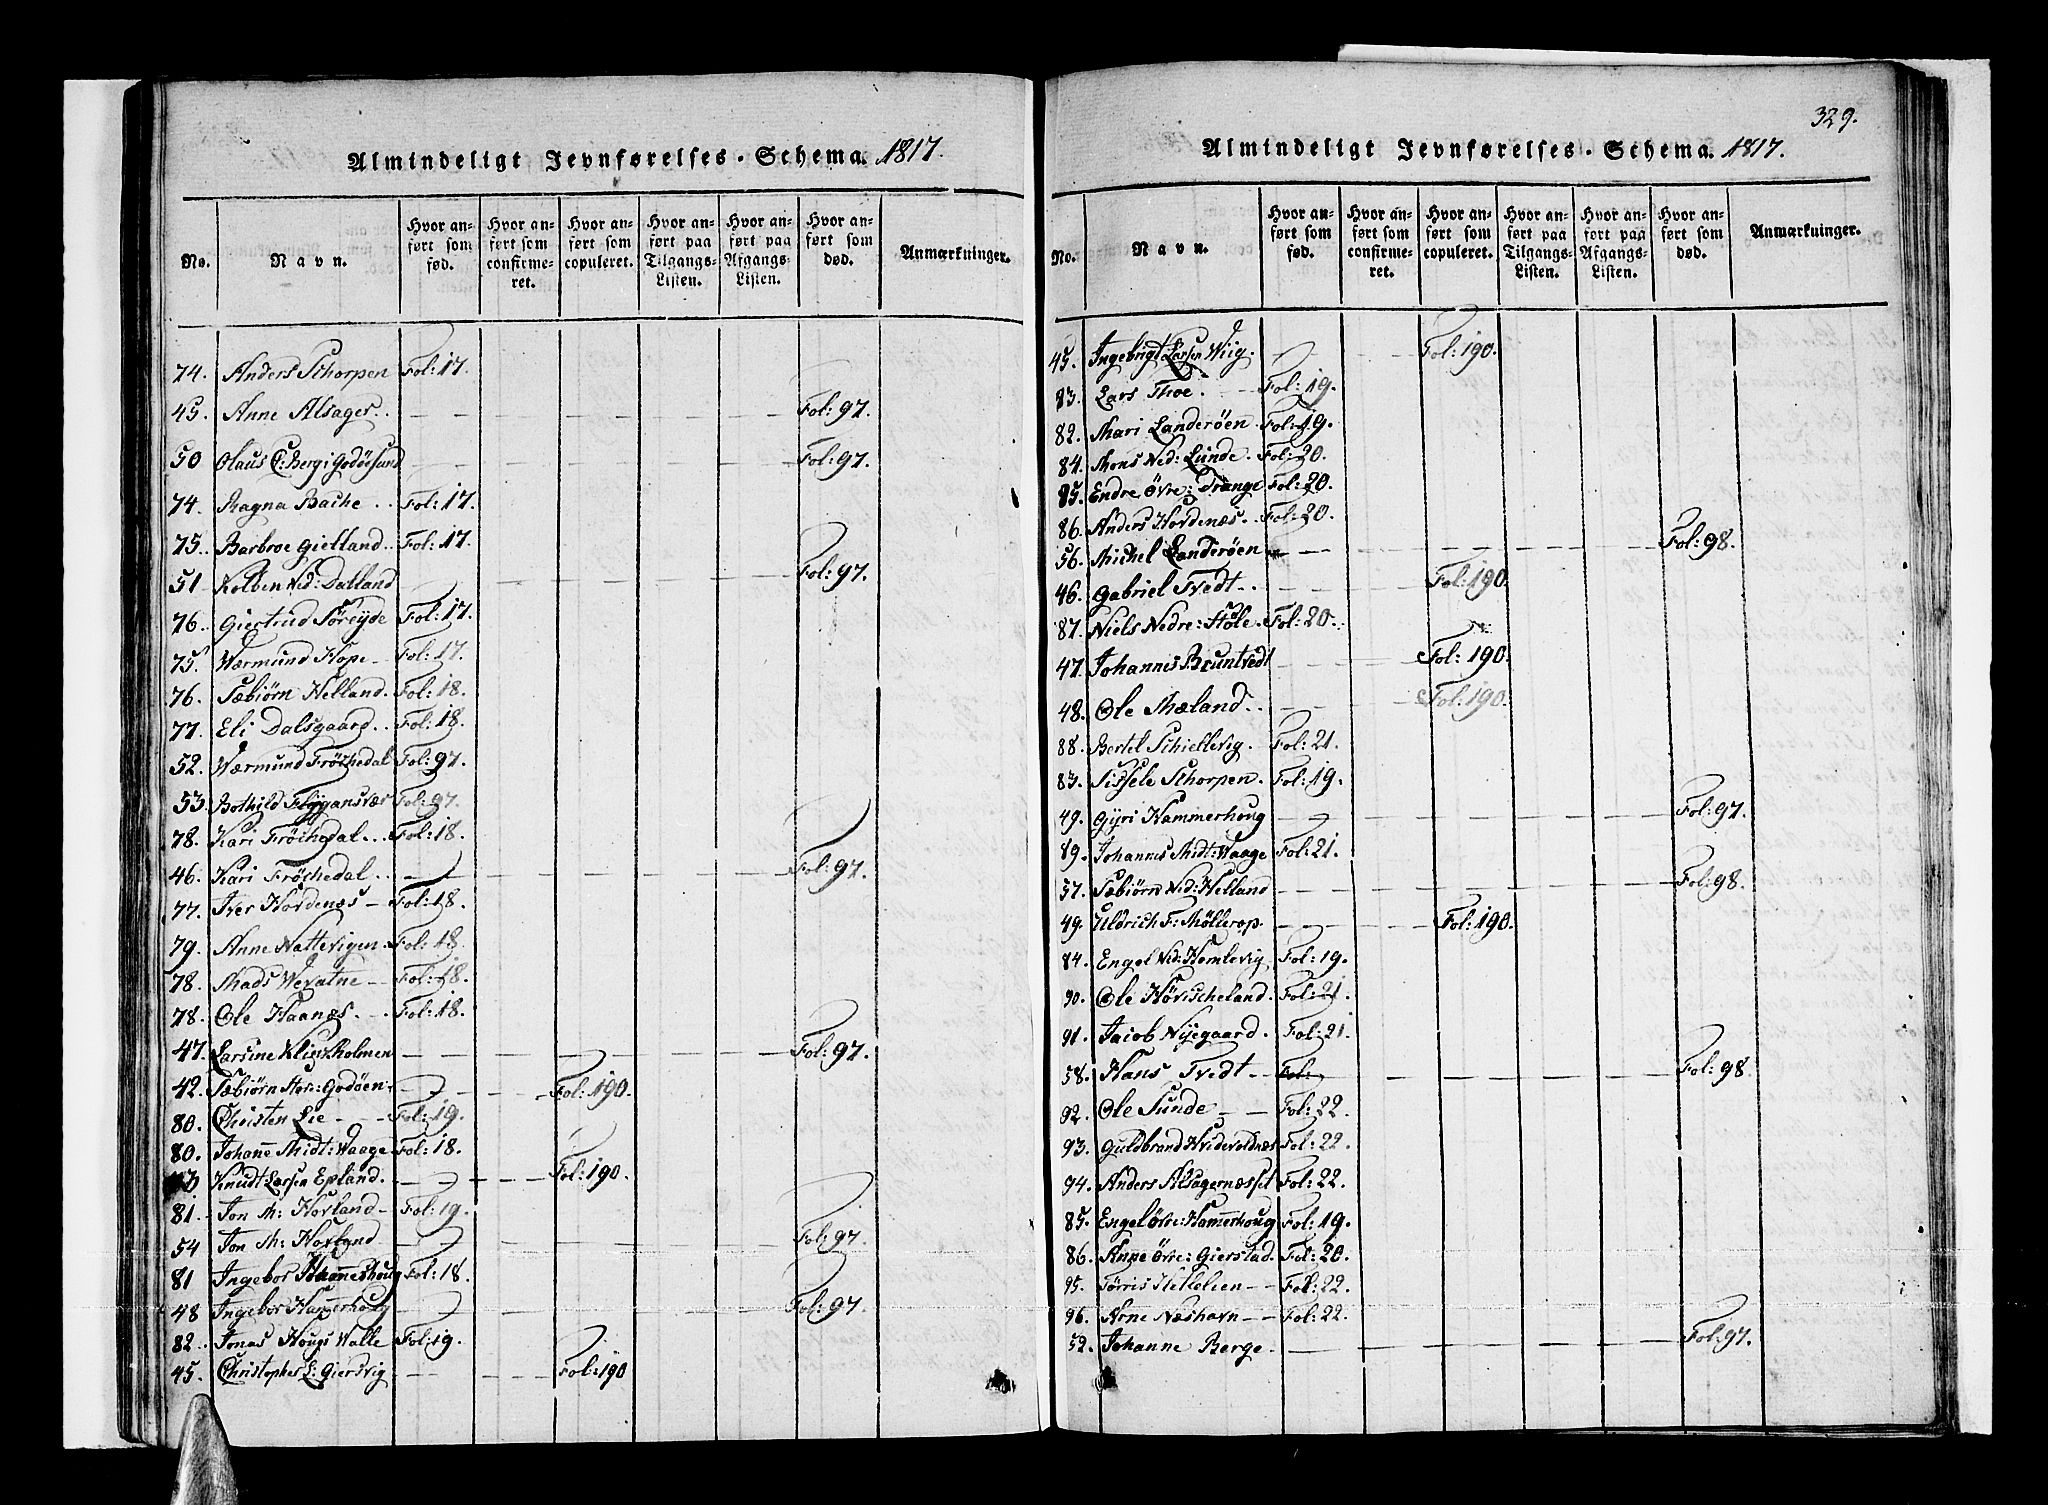 Almindeligt Jevnførelses-Schema. 1817.
No.
Navn.
Hvor anført som fød.
Hvor anført som confirmeret.
Hvor anført som copuleret.
Hvor anført paa Tilgangs-Listen.
Hvor anført paa Afgangs-Listen.
Hvor anført som død.
Anmærkninger.
74. Anders Schorpen Fol: 17.
45. Anne Alsager. Fol: 97.
50 Olaus C: Berg i Godöesund Fol: 97.
74. Ragna Bache Fol: 17.
75. Barbroe Gielland Fol: 17.
51 Kolben Ned: Dalland Fol: 97.
76. Giertrud Söreyde Fol: 17.
75. Wærmund Hope Fol: 17.
76. Sæbiörn Helland. Fol: 18.
77. Eli Dalsgaard Fol: 18.
52. Wærmund Fröchedal Fol: 97.
53. Bothild Flygansvær Fol: 97.
78. Kari Fröchedal Fol: 18.
46. Kari Fröchedal Fol: 97.
77. Iver Hordenæs Fol: 18.
79. Anne Nattevigen Fol: 18.
78. Mads Wevatne Fol: 18.
78. Ole Haanæs. Fol: 18.
47. Larsine Klinzholmen Fol: 97.
42. Sæbiörn Store: Godöen Fol: 190.
80. Christen Lie Fol: 19.
80. Johanne Midt: Waage Fol: 18.
43 Knudt Larsen Epland. Fol: 190.
81. Jon M: Hovland Fol: 19.
54 Jon M: Hovland Fol: 97.
81 Ingebor Hammerhoug Fol: 18.
48 Ingebor Hammerhoug Fol: 97.
82. Jonas Hougs Walle Fol: 19.
45. Christopher L: Giersvig Fol: 190
329.
Almindeligt Jevnførelses-Schema. 1817.
No.
Navn.
Hvor anført som fød.
Hvor anført som confirmeret.
Hvor anført som copuleret.
Hvor anført paa Tilgangs-Listen.
Hvor anført paa Afgangs-Listen.
Hvor anført som død.
Anmærkninger.
45. Ingebrigt Larsen Wiig. Fol: 190.
83. Lars Thoe. Fol: 19.
82. Mari Landeröen Fol: 19.
84. Mons Ned: Lunde. Fol: 20.
85. Endre Övre: Drange Fol: 20.
86. Anders Hordenæs Fol: 20.
56. Michel Landeröen Fol: 98.
46. Gabriel Tvedt Fol: 190.
87. Niels Nedre: Höle. Fol: 20.
47. Johannis Bruntvedt Fol: 190.
48. Ole Mæland Fol: 190.
88. Bertel Schiellevig. Fol: 21.
83. Sissele Schorpen. Fol: 19.
49. Gyri Hammerhoug Fol: 97.
89. Johannis Midt: Waage Fol: 21.
57. Sæbiörn Ned: Helland Fol: 98.
49. Uldrich F: Möllerop. Fol: 190.
84. Engel Ned: Hemlevig Fol: 19.
90. Ole Hövischeland. Fol: 21.
91. Jacob Nyegaard. Fol: 21
58. Hans Tvedt Fol: Fol: 98.
92. Ole Sunde Fol: 22.
93. Guldbrand Hvidevoldnæs Fol: 22.
94. Anders Alsagernæsset Fol: 22.
85. Engel Övre: Hamerhoug Fol: 19.
86. Anne Övre: Gierstad. Fol: 20.
95. Törris Hetlelien Fol: 22.
96. Arne Næshavn Fol: 22.
52. Johanne Berge. Fol: 97.